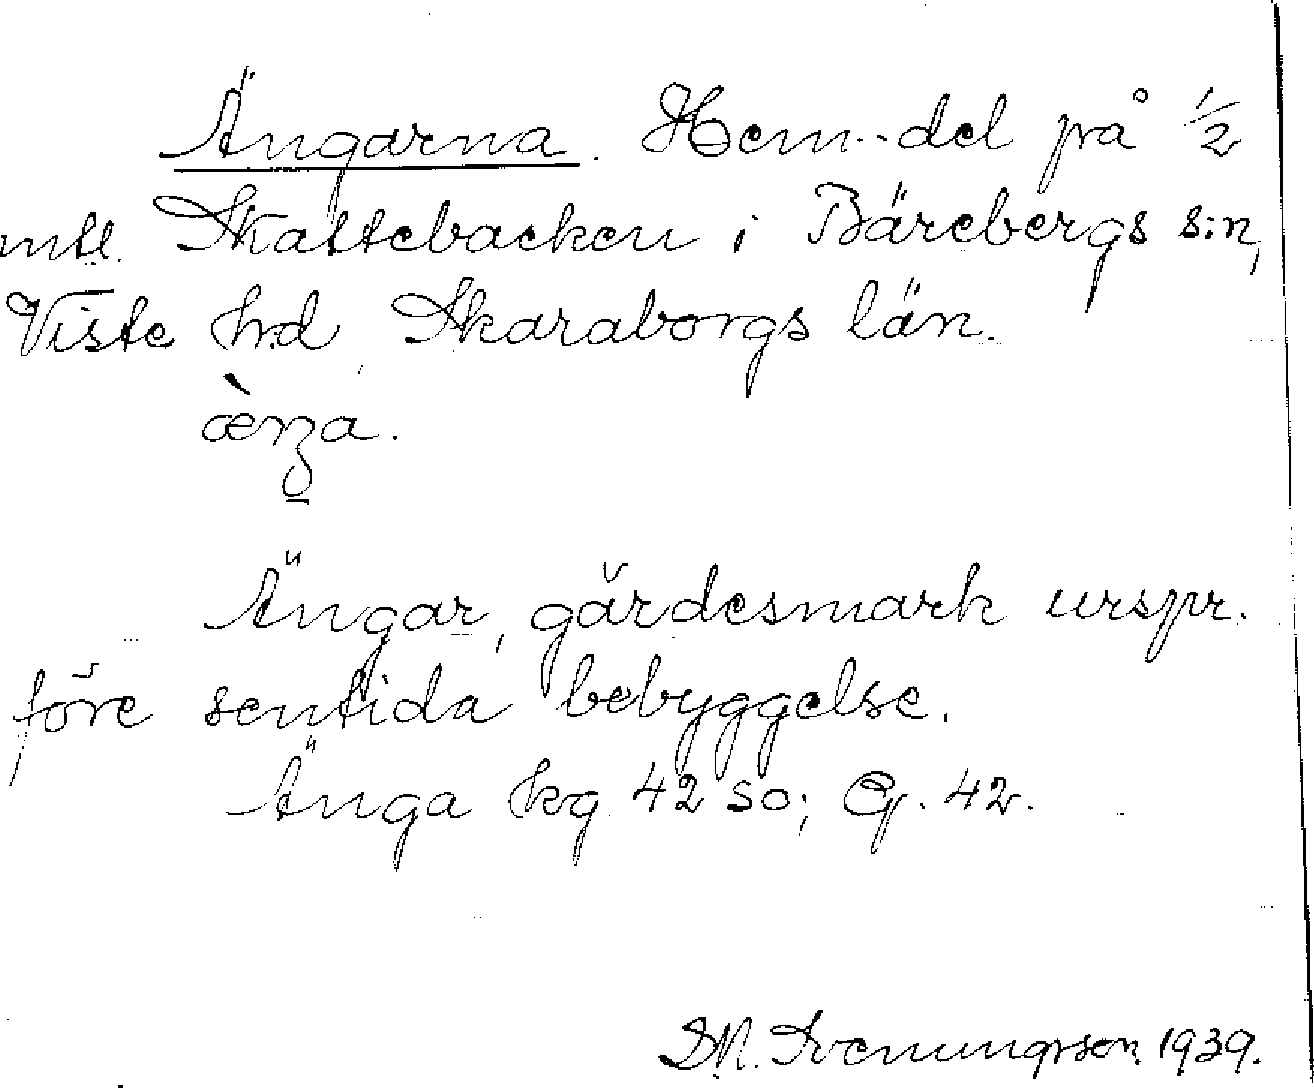 Ängarna. Hem.-del på 1/2
mtl. Skattebacken i Bärebergs s:n,
Viste hrd, Skaraborgs län.
Ängar, gärdesmark urspr.
före sentida bebyggelse.
Änga hg 42 so; G. 42.
1939.